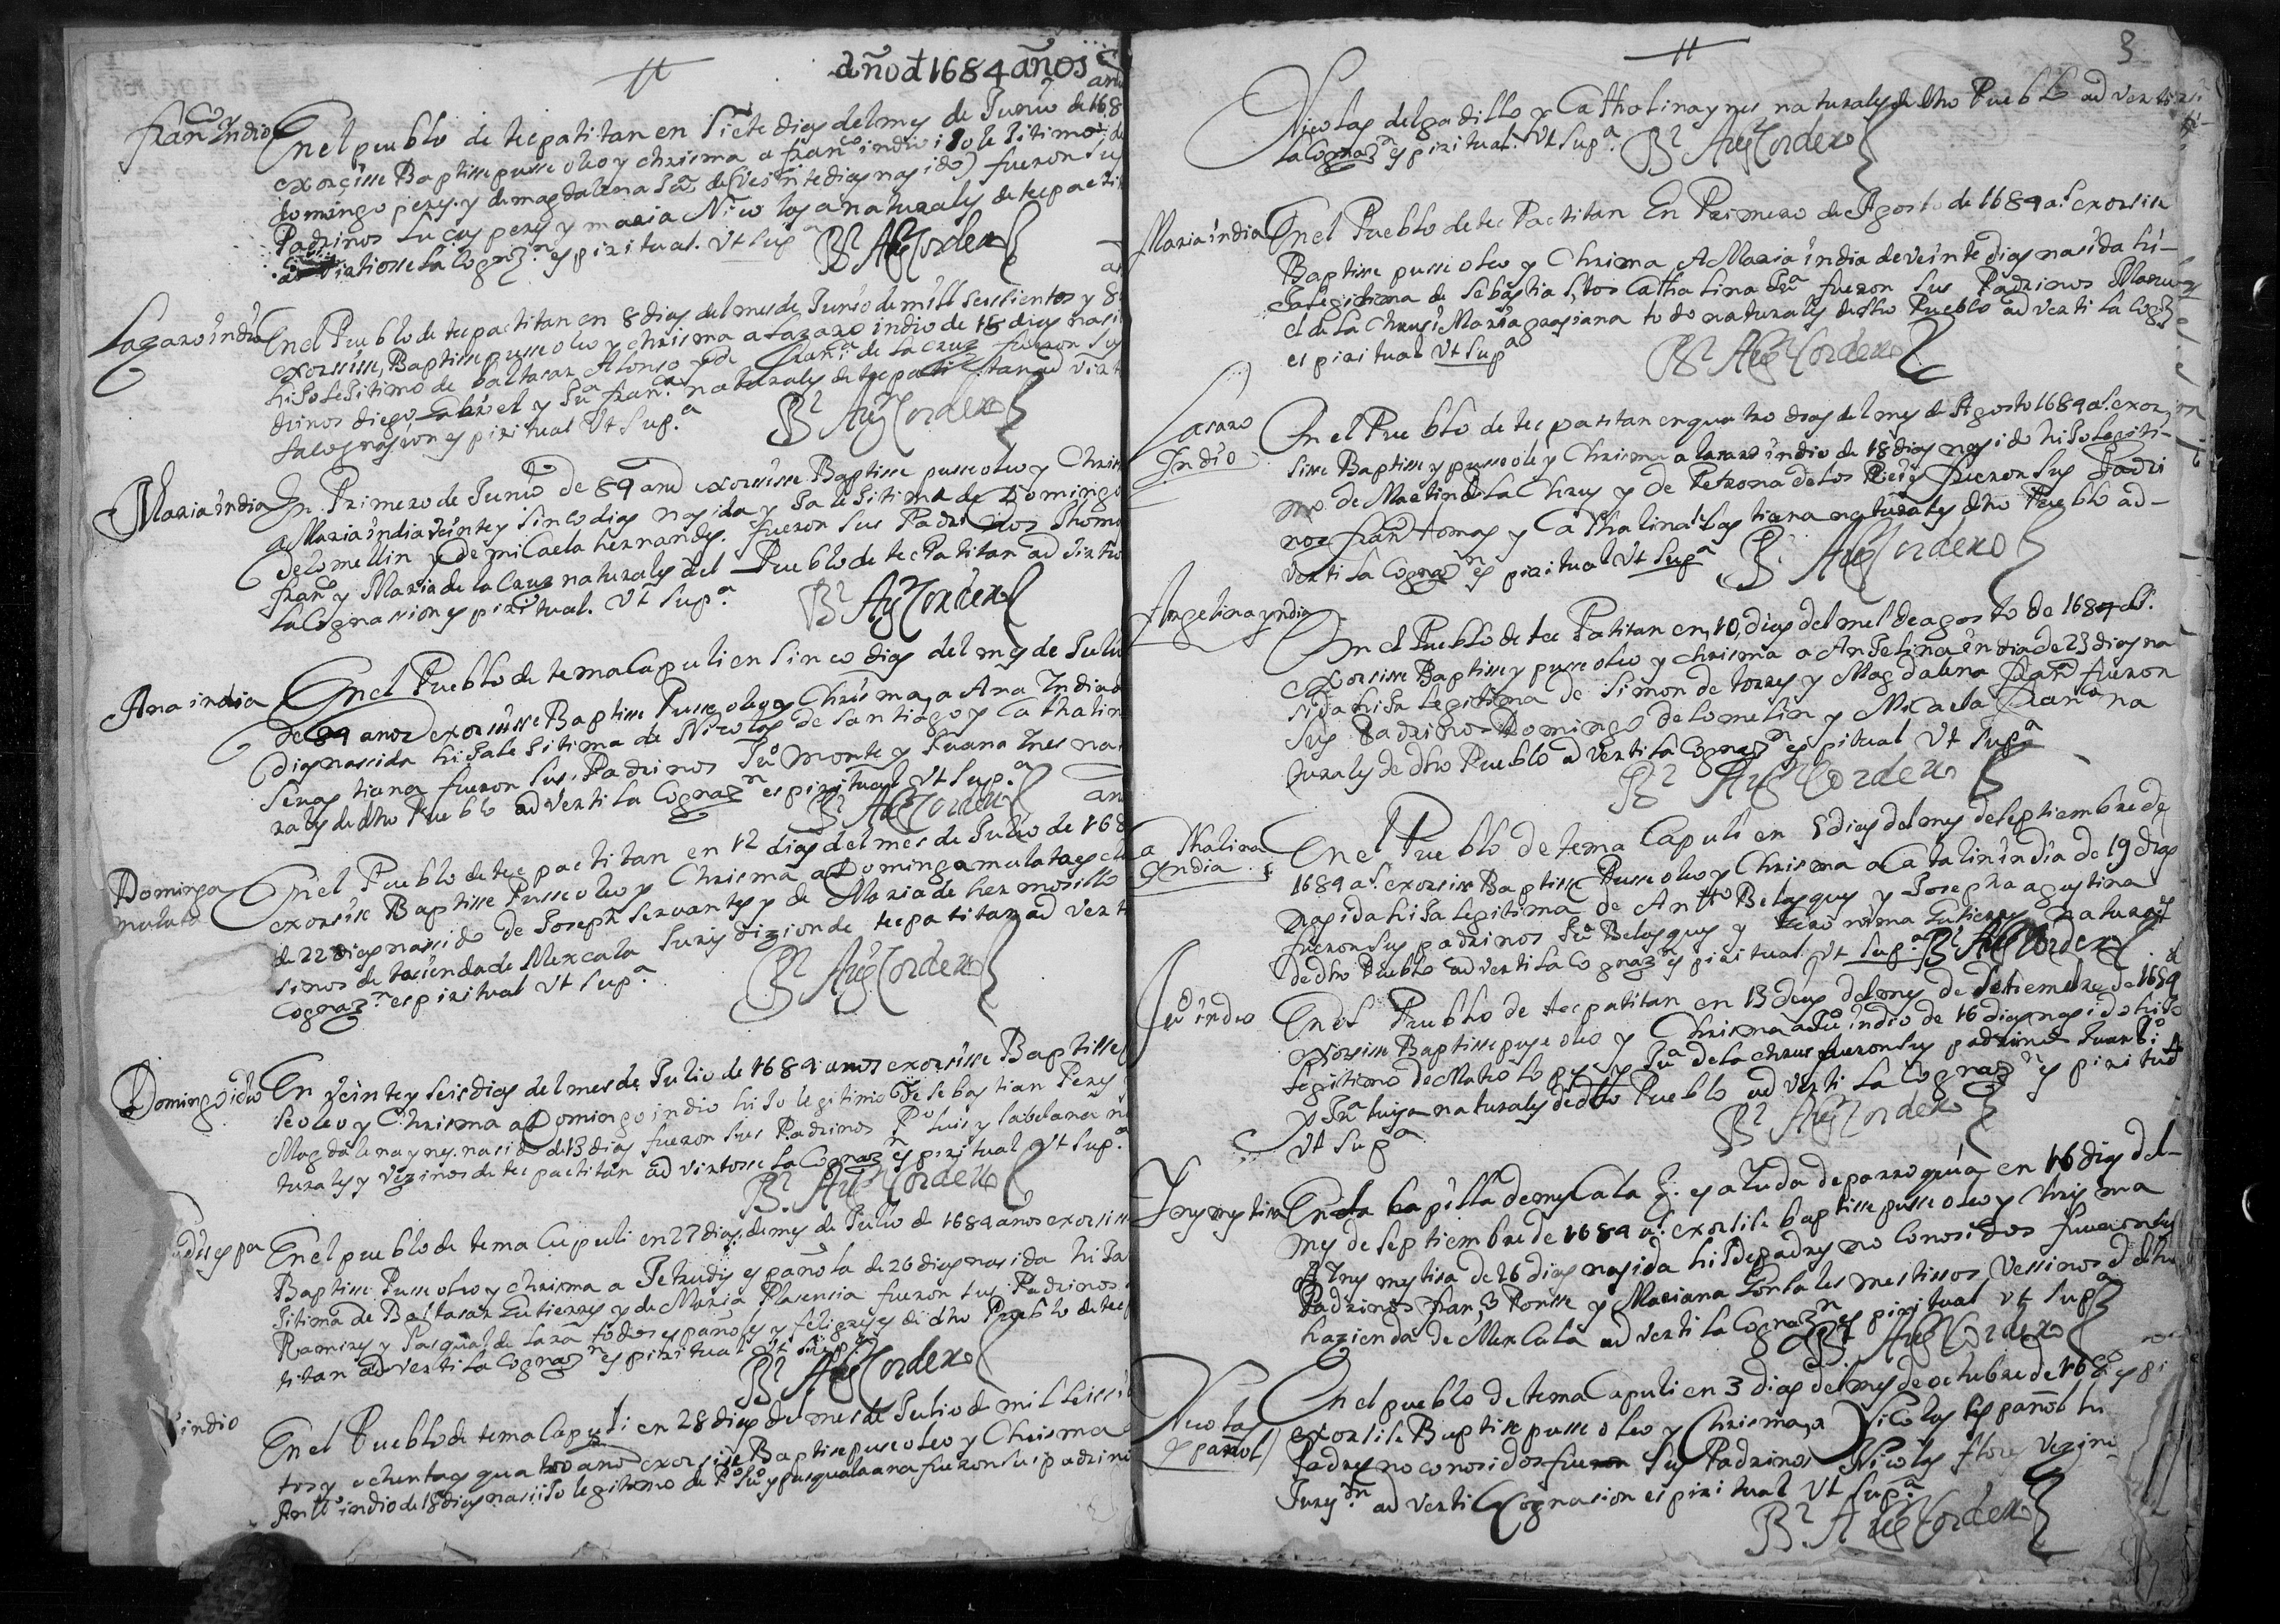 año d 1684 años
fran.co Indio
En el pueblo de tecpatitan en siete dias del mes de Junio de 168
exorçisse Baptisse pusse oleo y chrisma a fran.co indio
domingo peres y de magdalena Ju.a de (veinte dias nasido) fueron sus
Padrinos Lucas peres y maria Nicolasa naturales de tecpatit
la Cognaz.n espiritual. Vt Sup.a B.r Aug Cordero
Lazaro indio
En el Pueblo de tecpactitan en 8 dias del mes de Junio de mill seissientos y 8
exorsisse, Baptisse pusse oleo y chrisma a Lazaro indio de 18 dias nasi
hiJo leJitimo de baltasar Alonso y de fran.ca de la cruz fueron sus
drinos diego Gabriel y Ju.a fran.ca naturales de tecpatitan ad virt
la cognasion espiritual Vt Sup.a B.r Aug Cordero
Maria india
En Primero de Junio de 84 anõ exorsisse Baptisse pusse oleo y Chris
a Maria india veinte y sinco dias nasida y Ja leJitima de Domingo
de lomellin y de micaela hernandes. fueron sus Padrinos thoma
fran.co y Maria de la Cruz naturales del Pueblo de tecPatitan ad virtio
la Cognassion espiritual. Vt Sup.a B.r Aug Cordero
Ana india
En el Pueblo de temaCapuli en sinco dias del mes de Juli
de 84 anos exorsisse Baptisse Pusse oleo y Chrisma, a Ana India d
dias nassida hiJa leJitima de Nicolas de santiago y Cathalin
Sevastiana fueron sus Padrinos Ju.o monte y Juana Ines na
rales de dho Pueblo ad verti la Cognaz.n espiritual Vt Sup.a
B.r Aug Cordero
Dominga mulata
En el Pueblo de tecpactitan en 12 dias del mes de Julio de 168
exorsisse Baptisse Pusse oleo y Chrisma a Dominga mulata escl
de 22 dias nassido de Joseph servantes y de Maria de hermosillo
sinos de haciendade Mexcala Jurisdizion de tecpatitan ad verti
Cognaz.n espiritual Vt Sup.a B.r Aug Cordero
Domingo idio
En veinte y seis dias del mes de Julio de 1684 anos exorsisse Baptisse
se oleo y Chrisma a Domingo indio hiJo legitimo de sebastian Peres
Magdalena ynes. nasido de 13 dias fueron sus Padrinos P.o luis y sabelana na
turales y vezinos de tecpactitan ad virtosse la Cognaz.n espiritual Vt Sup.a
B.r Aug Cordero
dis espa
En el pueblo de temaCapuli en 27 dias de mes de Julio de 1684 anos exorsiss
Baptisse Pusse oleo y chrisma a Jetrudis española de 26 dias nasida hiJa
Jitima de Baltasar Gutierres y de Maria Plasensia fueron sus Padrinos
Ramires y Pasqual de Lara todos españoles y feligreses de dho Pueblo de tec
titan ad verti la Cognaz.n espiritual Vt Sup.a
B.r Aug Cordero
indio
En el Pueblo de temaCapuli en 28 dias del mes de Julio de mil seissi
tos y ochenta y quatro anõ exorsise Baptise puse oleo y Chrisma
Ant.o indio de 18 dias nasi iJo legitimo de P.o Ju.o y pasquala ana fueron sus padrino
3
Nicolas delgadillo y Catholina ynes naturales de dho Pueblo ad verti
la Cognaz.n espiritual. Vt Sup.a B.r Aug Cordero
Maria india
En el Pueblo de tec Pactitan En Primero de Agosto de 1684 a.s exorsise
Baptisse pusse oleo y Chrisma A Maria india de veinte dias nasida hi-
Ja legitima de Sebastia s.tos Catha lina Ju.a fueron sus Padrinos Manu
el de la Chrus i Maria grasiana todo naturales de dho Pueblo ad verti la Cogz
espiritual Vt Sup.a B.r Aug Cordero
Lasaro Indio
En el Pueblo de tecpatitan en quatro dias del mes de Agosto 1684 a.s exor
sisse Baptisse y pusse ole y Chrisma a lasaro indio de 18 dias nasido hiJo legiti-
mo de Martin de la Chrus y de Petrona de los Reies fueron sus Padri
nos fran.co tomas y Cathalina sebastiana naturales dho Pueblo ad-
verti la Cognaz.n espiritual Vt Sup.a B.r Aug Cordero
Angelina yndia
En el Pueblo de tec Patitan en, 10, dias del mes de agosto de 1684 a.s
exorsisse Baptisse y pusse oleo y chrisma a AnJelina india de 23 dias na
sida hiJa legitima de Simon de torres y Magdalena fran.ca fueron
sus Padrinos Domingo de lomelin y Micaela fran.ca na
turales de dho Pueblo ad verti la Cognaz.n espitual Vt Sup.a
B.r Aug Cordero
a thalina Yndia
En el Pueblo de tema Capuli en 5 dias del mes de septiembre de
1684 a.s exorsise Baptisse Pusse oleo y Chrisma a Catalin india de 19 dias
nasida hiJa legitima de Ant.o Belasques y Josepha agustina
fueron sus padrinos Ju.a Belasques y Gutierres naturales
de dho Pueblo ad verti la Cognaz.n espiritual Vt Sup.a B.r Aug Cordero
Ju.o indio
En el Pueblo de tecpatitan en 13 dias del mes de setiembre de 1684
exorsisse Baptisse puse oleo y Chrisma a Ju.o indio de 16 dias nasido hiJo
Legitimo de Mateo lopes y Ju.a de la chrus fueron sus padrinos
y Ju.a luisa naturales de dho Pueblo ad verti la Cognaz.n espiritual
Vt Sup.a B.r Aug Cordero
Ynes mestisa
En la Capilla de mesCala q. es aiuda de parroquia, en 16 dias del-
mes de septiembre de 1684 a.s exorsise baptisse pusse oleo y chrisma
A Ynes mestisa de 26 dias nasida hiJ de padres no Conosidos fueron sus
Padrinos fran.co Ponsse y Mariana Gonsales mestissos Vessinos d dha
hazienda de Mexcala ad verti la Cognaz.n espiritual Vt Sup.a
B.r Aug Cordero
Nicolas Español
En el pueblo de temaCapuli en 3 dias del mes de octubre de 168
exorsise Baptisse pusse oleo y Chrisma, a Nicolas Español hi
Padres no conosidos fueron sus Padrinos Nicolas flores Vezino
Jures.on ad verti Cognasion espiritual Vt Sup.a
B.r Aug Cordero